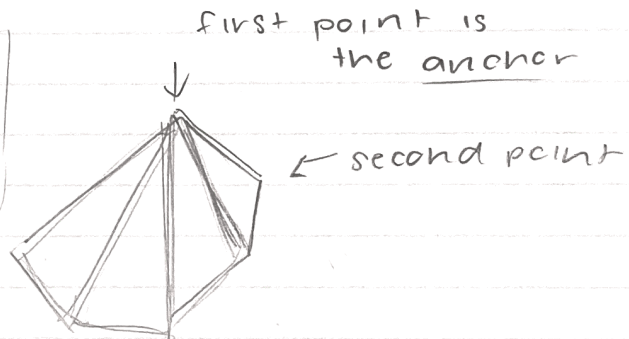 first point is
the anchor
second point